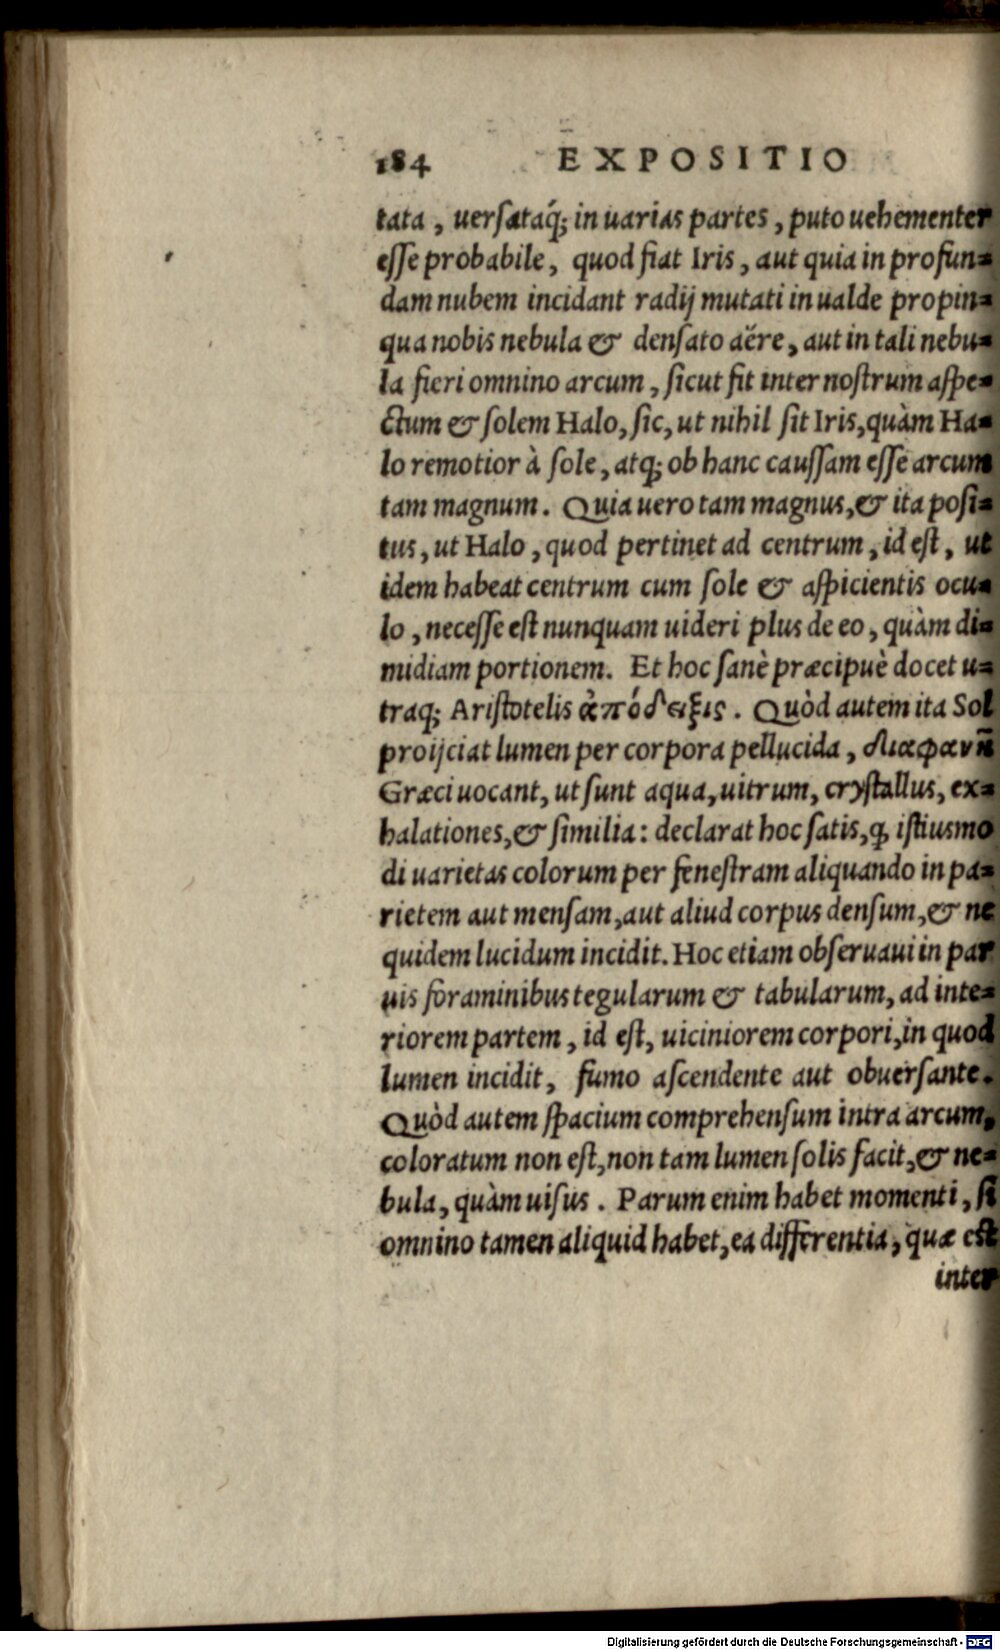 184 EXPOSITIO
tata, uersataq́; in uarias partes, puto uehementer
esse probabile, quod fiat Iris, aut quia in profun=
dam nubem incidant radij mutati in ualde propin=
qua nobis nebula & densato aëre, aut in tali nebu=
la fieri omnino arcum, sicut fit inter nostrum aspe=
ctum & solem Halo, sic, ut nihil sit Iris, quàm Ha=
lo remotior à sole, atq; ob hanc caussam esse arcum
tam magnum. Quia uero tam magnus, & ita posi=
tus, ut Halo, quod pertinet ad centrum, id est, ut
idem habeat centrum cum sole & aspicientis ocu=
lo, necesse est nunquam uideri plus de eo, quàm di=
midiam portionem. Et hoc sanè præcipuè docet u=
traq; Aristotelis ἀπόδειξις. Quòd autem ita Sol
proijciat lumen per corpora pellucida, διαφανῆ
Græci uocant, ut sunt aqua, uitrum, crystallus, ex=
halationes, & similia: declarat hoc satis, ꝙ istiusmo
di uarietas colorum per fenestram aliquando in pa=
rietem aut mensam, aut aliud corpus densum, & ne
quidem lucidum incidit. Hoc etiam obseruaui in par
uis foraminibus tegularum & tabularum, ad inte=
riorem partem, id est, uiciniorem corpori, in quod
lumen incidit, fumo ascendente aut obuersante.
Quòd autem spacium comprehensum intra arcum,
coloratum non est, non tam lumen solis facit, & ne=
bula, quàm uisus. Parum enim habet momenti, si
omnino tamen aliquid habet, ea differentia, quæ est
inter
Digitalisierung gefördert durch die Deutsche Forschungsgemeinschaft - DFG